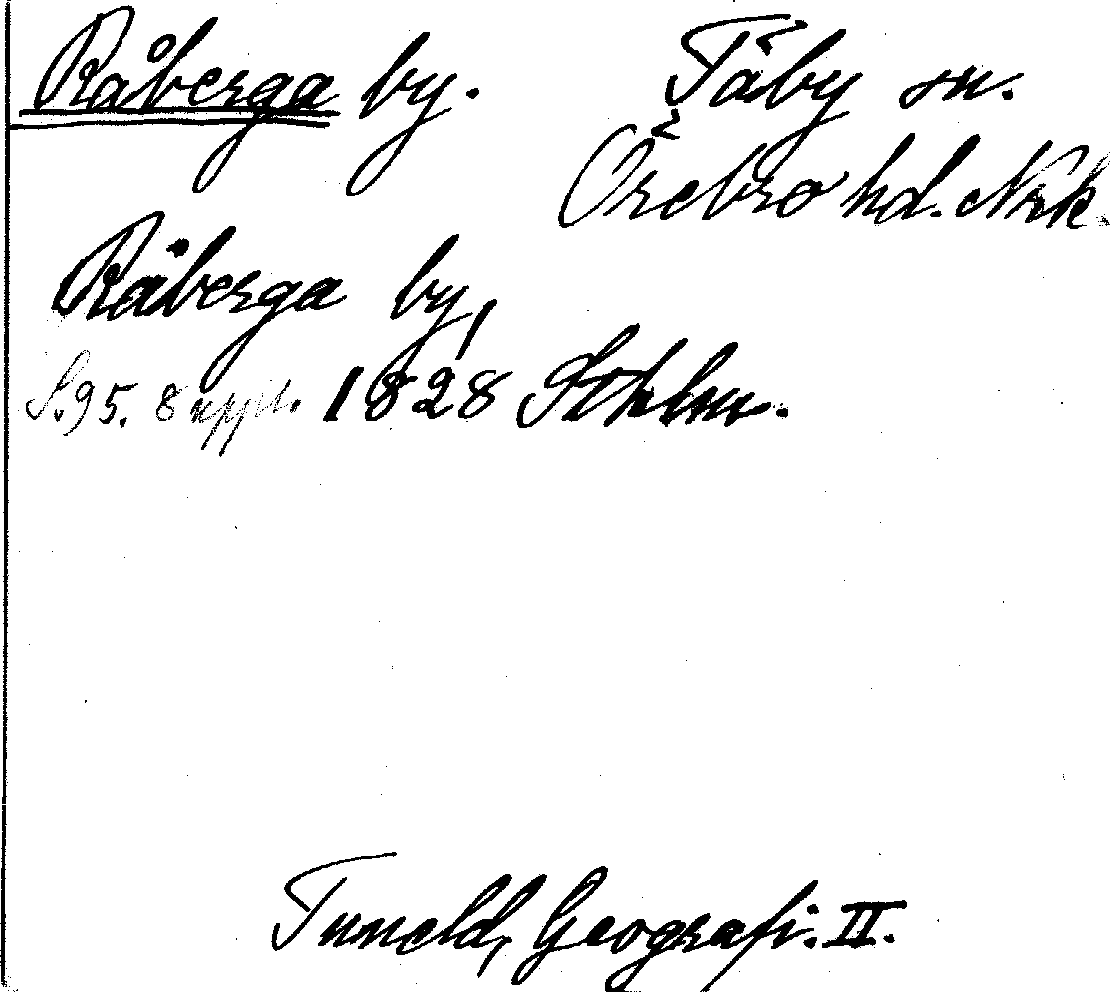 Råberga by. Täby sn.
Örebro hd. Nrk.
Råberga by,
S. 95. 8 uppl. 1828 Sthlm.
Tuneld, Geografi. II.